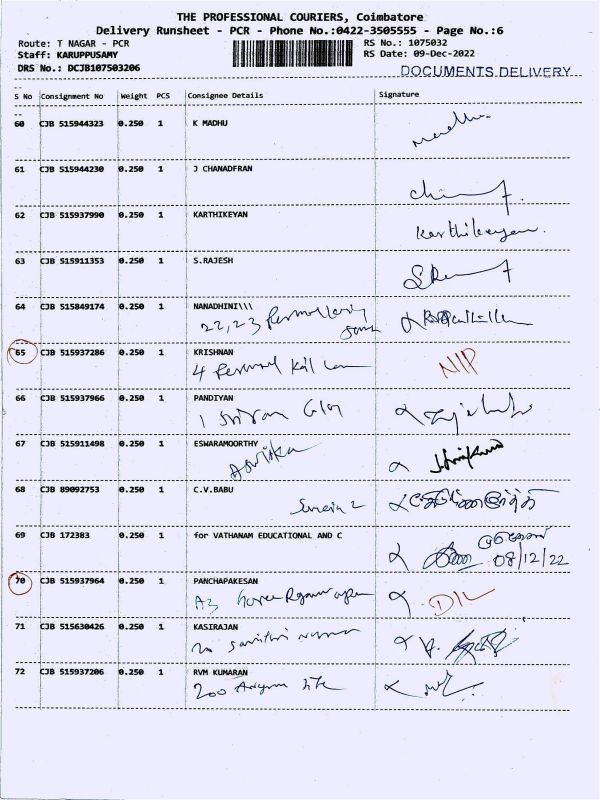 THE PROFESSIONAL COURIERS, Coimbatore
Delivery Runsheet - PCR - Phone No.:0422-3505555 - Page No.:6
Route: T NAGAR - PCR RS No.: 1075032
Staff: KARUPPUSAMY RS Date: 09-Dec-2022
DRS No.: DCJB107503206 DOCUMENTS DELIVERY
S No Consignment No Weight PCS Consignee Details Signature
60 CJB 515944323 0.250 1 K MADHU
61 CJB 515944230 0.250 1 J CHANADFRAN
62 CJB 515937990 0.250 1 KARTHIKEYAN Karthikeyan.
63 CJB 515911353 0.250 1 S.RAJESH
64 CJB 515849174 0.250 1 NANADHINI\\\
22,23
65 CJB 515937286 0.250 1 KRISHNAN
4
66 CJB 515937966 0.250 1 PANDIYAN
1
67 CJB 515911498 0.250 1 ESWARAMOORTHY
68 CJB 89092753 0.250 1 C.V.BABU
69 CJB 172383 0.250 1 for VATHANAM EDUCATIONAL AND C
08/12/22
70 CJB 515937964 0.250 1 PANCHAPAKESAN
A3
71 CJB 515630426 0.250 1 KASIRAJAN
72 CJB 515937206 0.250 1 RVM KUMARAN
200